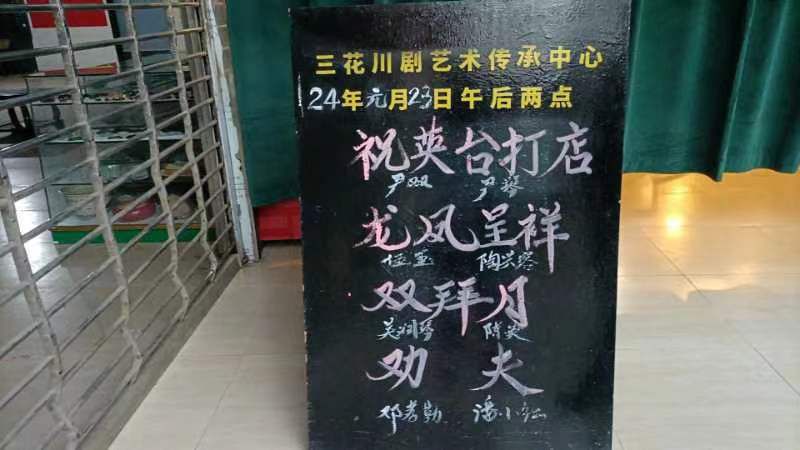 三花川剧艺术传承中心
24年元月23日午后两点
祝英台打店
尹 尹
龙凤呈祥
陶兴容
双拜月
吴 陈英
劝 夫
邓孝勤 潘小红